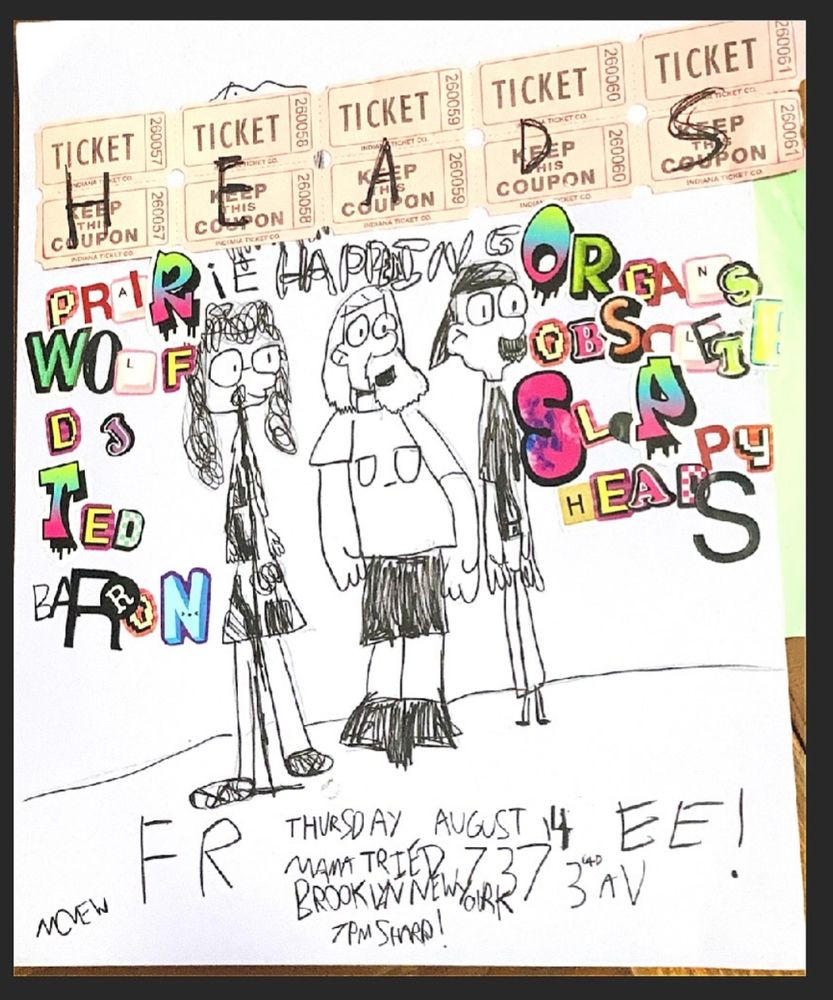 TICKET 260057 TICKET 260058 TICKET 260059 TICKET 260060 TICKET 260061
INDIANA TICKET CO. INDIANA TICKET CO. INDIANA TICKET CO. INDIANA TICKET CO. INDIANA TICKET CO.
H E A D S
KEEP THIS COUPON 260057 KEEP THIS COUPON 260058 KEEP THIS COUPON 260059 KEEP THIS COUPON 260060 KEEP THIS COUPON 260061
INDIANA TICKET CO. INDIANA TICKET CO. INDIANA TICKET CO. INDIANA TICKET CO. INDIANA TICKET CO.
HAPPENING
PRAIRiE
WOLF
DJ
TED
BARRON
ORGANS
OBSOLETE
SLAPPY
HEADS
FREE!
THURSDAY AUGUST 14
MAMA TRIED 737 3RD AV
BROOKLYN NEW YORK
7PM SHARP!